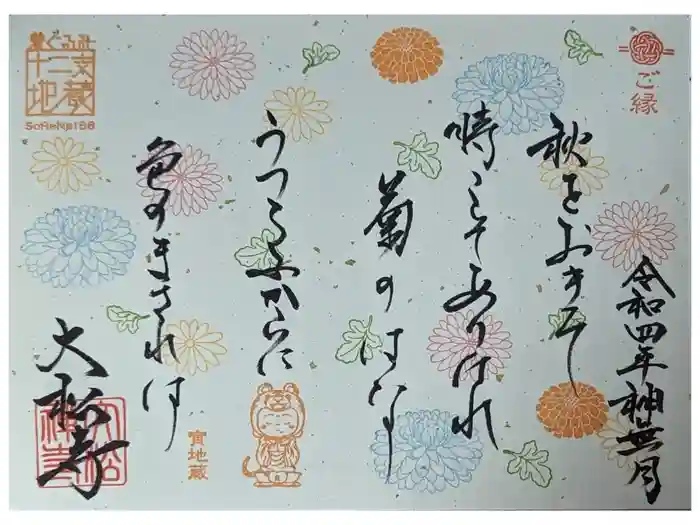 ご縁
令和四年神無月
秋をおきて
時こそありけれ
菊のはな
うつろふからに
色のまされは
大松寺
着ぐるみ
十二支
地蔵
寅地蔵